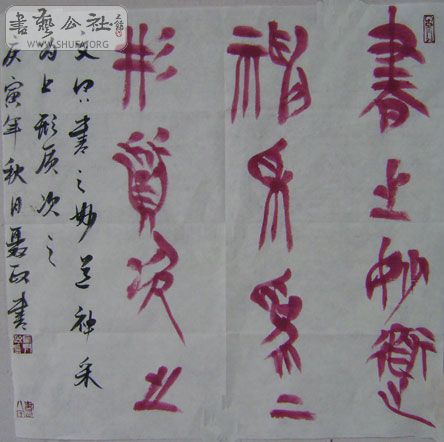 書之妙道
神采為上
形質次之
文曰書之妙道神采
為上形质次之
庚寅年秋日書
書藝公社
WWW.SHUFA.ORG